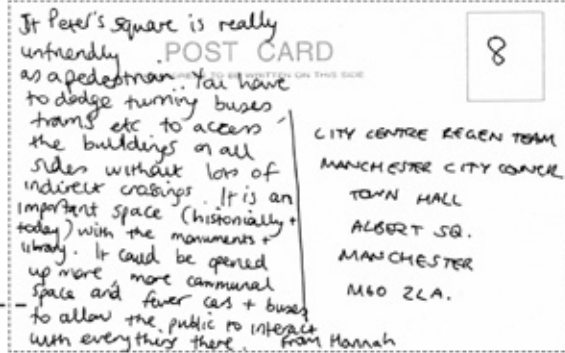 St Peter's Square is really
unfriendly
as a pedestrian. You have
to dodge turning buses
trams etc to access
the buildings on all
sides without lots of
indirect crossings. It is an
important space (historically +
today) with the monuments +
library. It could be opened
up more, more communal
space and fewer cars + buses
to allow the public to interact
with everything there. From Hannah
POST CARD
TO BE WRITTEN ON THIS SIDE
8
CITY CENTRE REGEN TEAM
MANCHESTER CITY COUNCIL
TOWN HALL
ALBERT SQ.
MANCHESTER
M60 2LA.